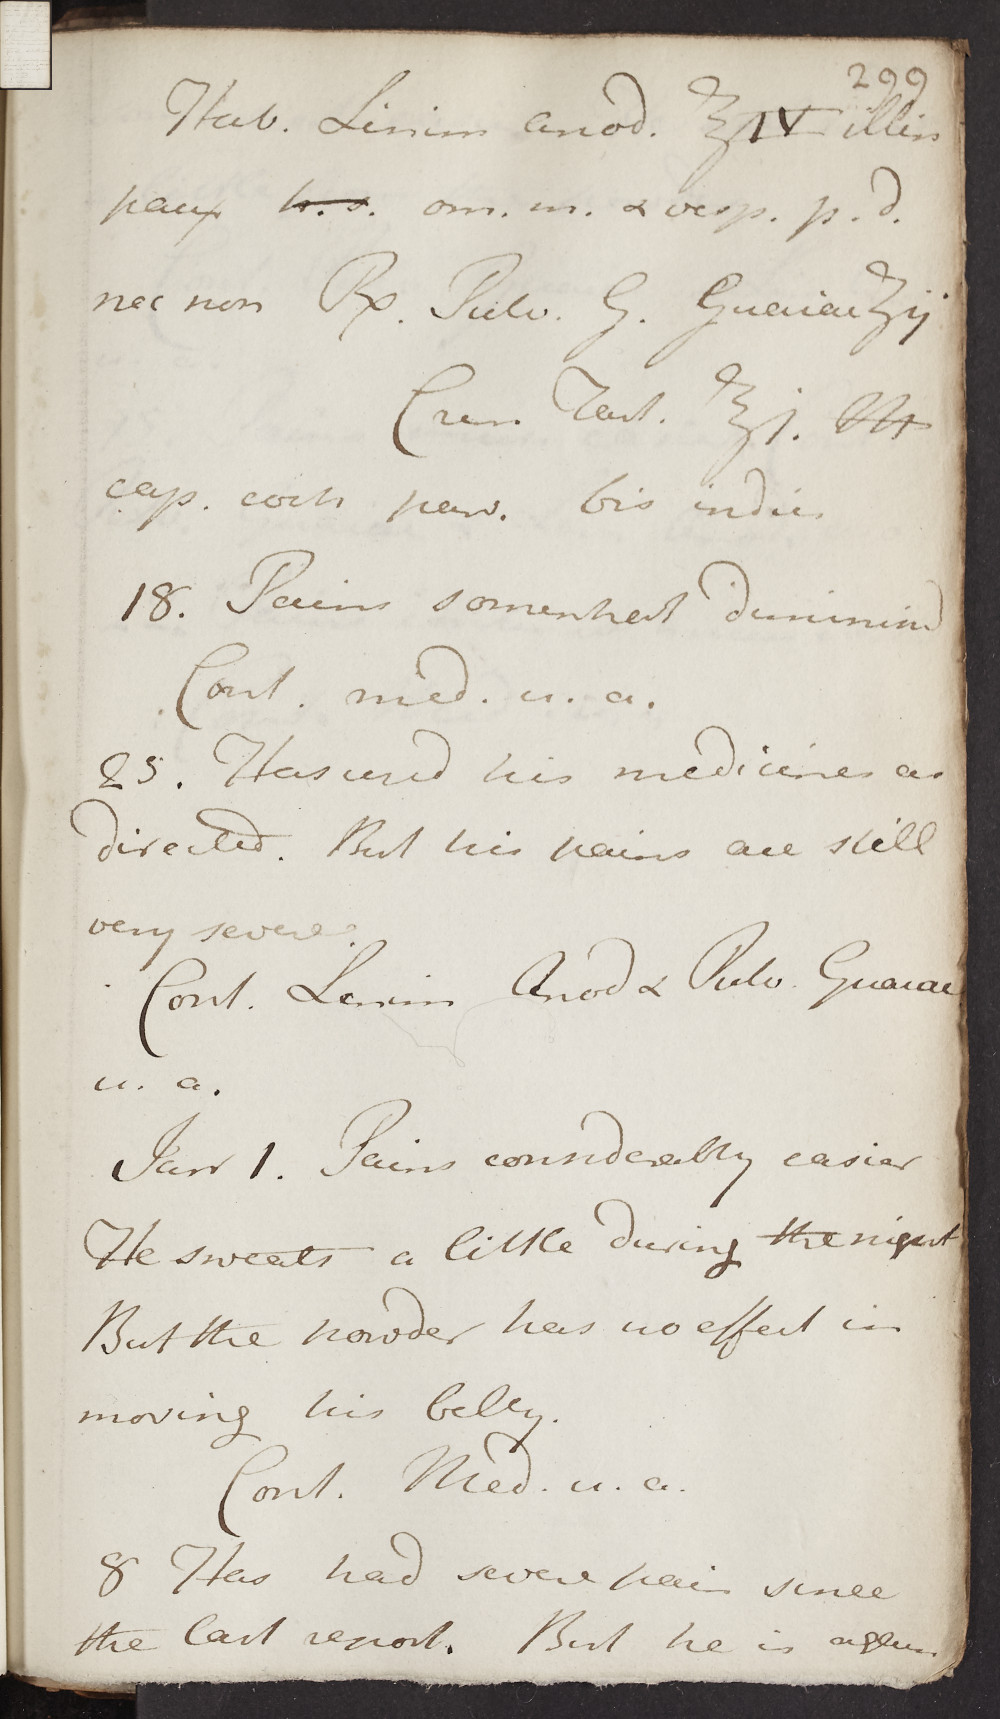 299
Hab. Linim anod. ℥IV illin
paux h. s. om. m. & vesp. p. d.
nec non Rx. Pulv. G. Guaiac ℥ij
Crem Tart. ℥j. M
cap. coch parv. bis indies
18. Pains somewhat diminind
Cont. med. u. a.
25. Has used his medicines as
directed. But his pains are still
very severe.
Cont. Linim Anod & Pulv. Guaiac
u. a.
Janr 1. Pains considerably easier
He sweats a little during the night
But the powder has no effect in
moving his belly.
Cont. Med. u. a.
8 Has had severe pain since
the last report. But he is again